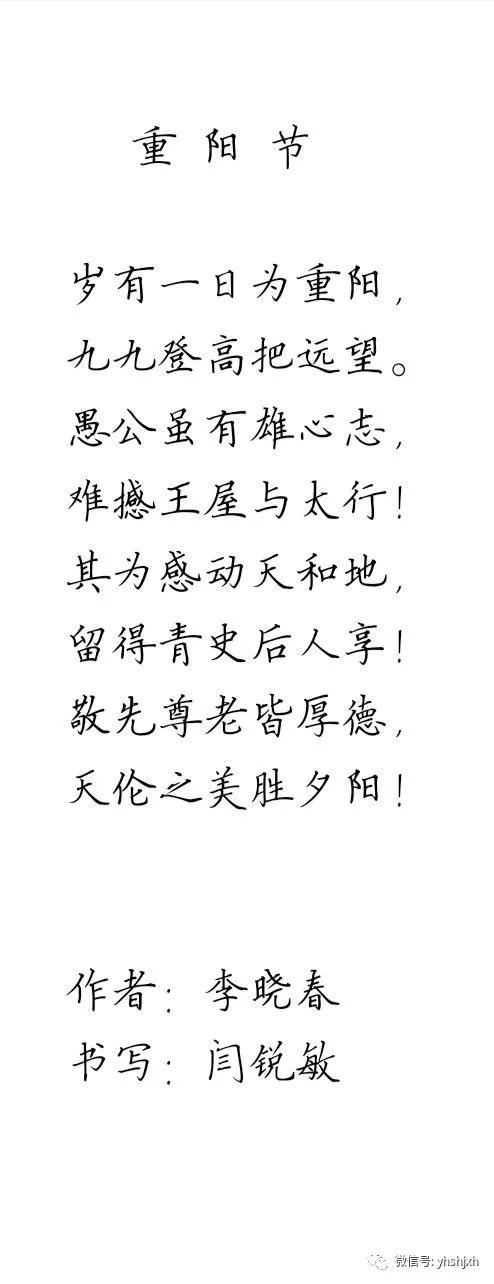 重阳节
岁有一日为重阳，
九九登高把远望。
愚公虽有雄心志，
难撼王屋与太行！
其为感动天和地，
留得青史后人享！
敬先尊老皆厚德，
天伦之美胜夕阳！
作者：李晓春
书写：闫锐敏
微信号: yhshjxh